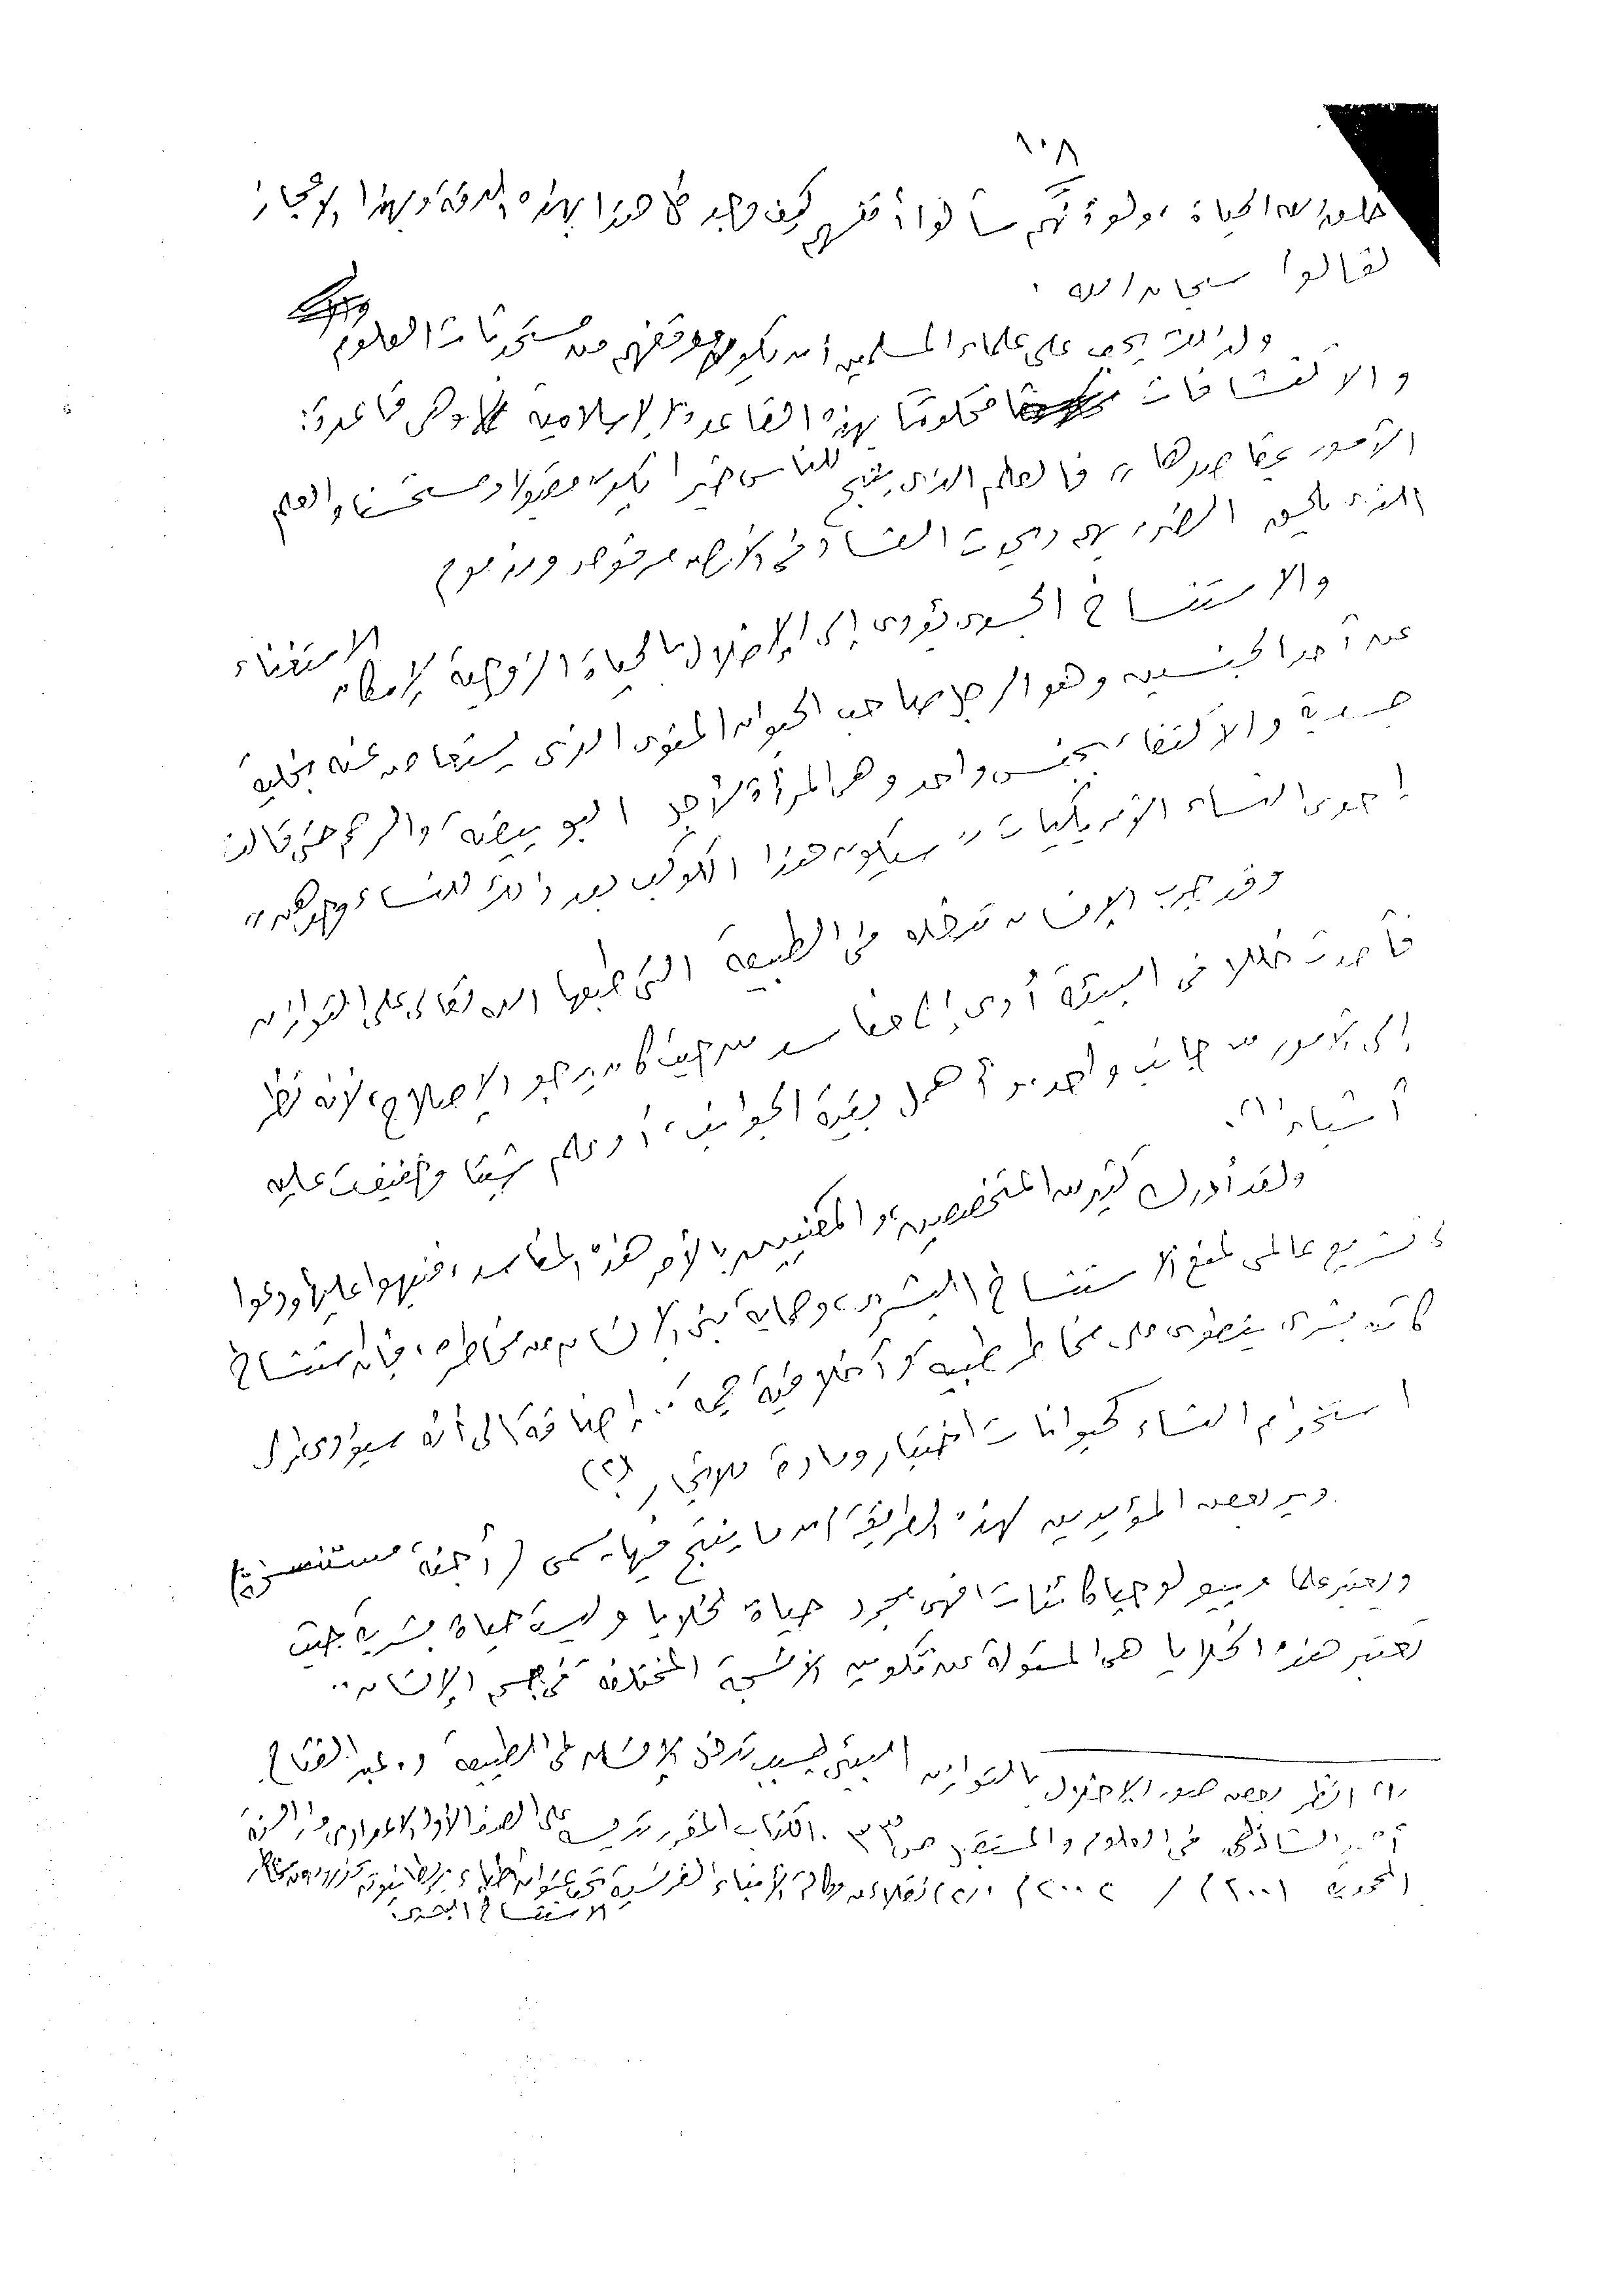 ١٠٨
خلق الله الحياة، ولو أنهم سألوا أنفسهم كيف وجد كل هذا بهذه الدقة وبهذا الإعجاز
لقالوا سبحان الله.
ولذلك يجب على علماء المسلمين أن يكون موقفهم من مستحدثات العلوم
والاكتشافات محكومًا بهذه القاعدة الإسلامية وهى قاعدة:
الأمور بمقاصدها،، فالعلم الذى ينتج للناس خيرا يكون مقبولا ومستحسنا والعلم
الذى يلحق الضرر بهم ويحدث الفساد فى الأرض مرفوض ومذموم
والاستنساخ الجسدى يؤدى إلى الإخلال بالحياة الزوجية لإمكان الاستغناء
عن أحد الجنسين وهو الرجل صاحب الحيوان المنوى الذى يستعاض عنه بخلية
جسدية والاكتفاء بجنس واحد وهى المرأة لأجل البويضة، والرحم حتى قالت
إحدى النساء الأمريكيات ،، سيكون هذا الكوكب بعد ذلك للنساء وحدهن،،
وقد جرب الإنسان تدخله فى الطبيعة التى طبعها الله تعالى على التوازن
فأحدث خللا فى البيئة أدى إلى مفاسد من حيث كان يرجو الإصلاح، لأنه نظر
إلى الأمور من جانب واحد، وأهمل بقية الجوانب، أو علم شيئا وخفيت عليه
أشياء(١).
ولقد أدرك كثير من المتخصصين، والمعنيين بالأمر هذه المفاسد، فنبهوا عليها ودعوا
لتشريع عالمى لمنع الاستنساخ البشرى، وحماية بنى الإنسان من مخاطره، فإن استنساخ
كائن بشرى ينطوى على مخاطر طبية وأخلاقية جمة.. إضافة إلى أنه سيؤدى إلى
استخدام النساء كحيوانات اختبار ومادة للاتجار(٢)
وير بعض المؤيدين لهذه الطريقة أن ما ينتج فيها يسمى (أجنة مستنسخة)
ويعتبر علما وبيولوجيا كائنات فهى مجرد حياة لخلايا وليست حياة بشرية بحيث
تعتبر هذه الخلايا هى المسئولة عن تكوين الأنسجة المختلفة فى جسم الإنسان..
(١) انظر بعض صور الإخلال بالتوازن البيئى بسبب تدخل الإنسان فى الطبيعة د. عبد الفتاح
الشاذلى فى العلوم والمستقبل ص ٣٣. الكتاب المقرر تدريسه على الصف الأول الإعدادى
٢٠٠١ / ٢٠٠٢م (٢) نقلا عن وكالة الأنباء الفرنسية تحت عنوان أطباء بريطانيون يحذرون من مخاطر
الاستنساخ البشرى.